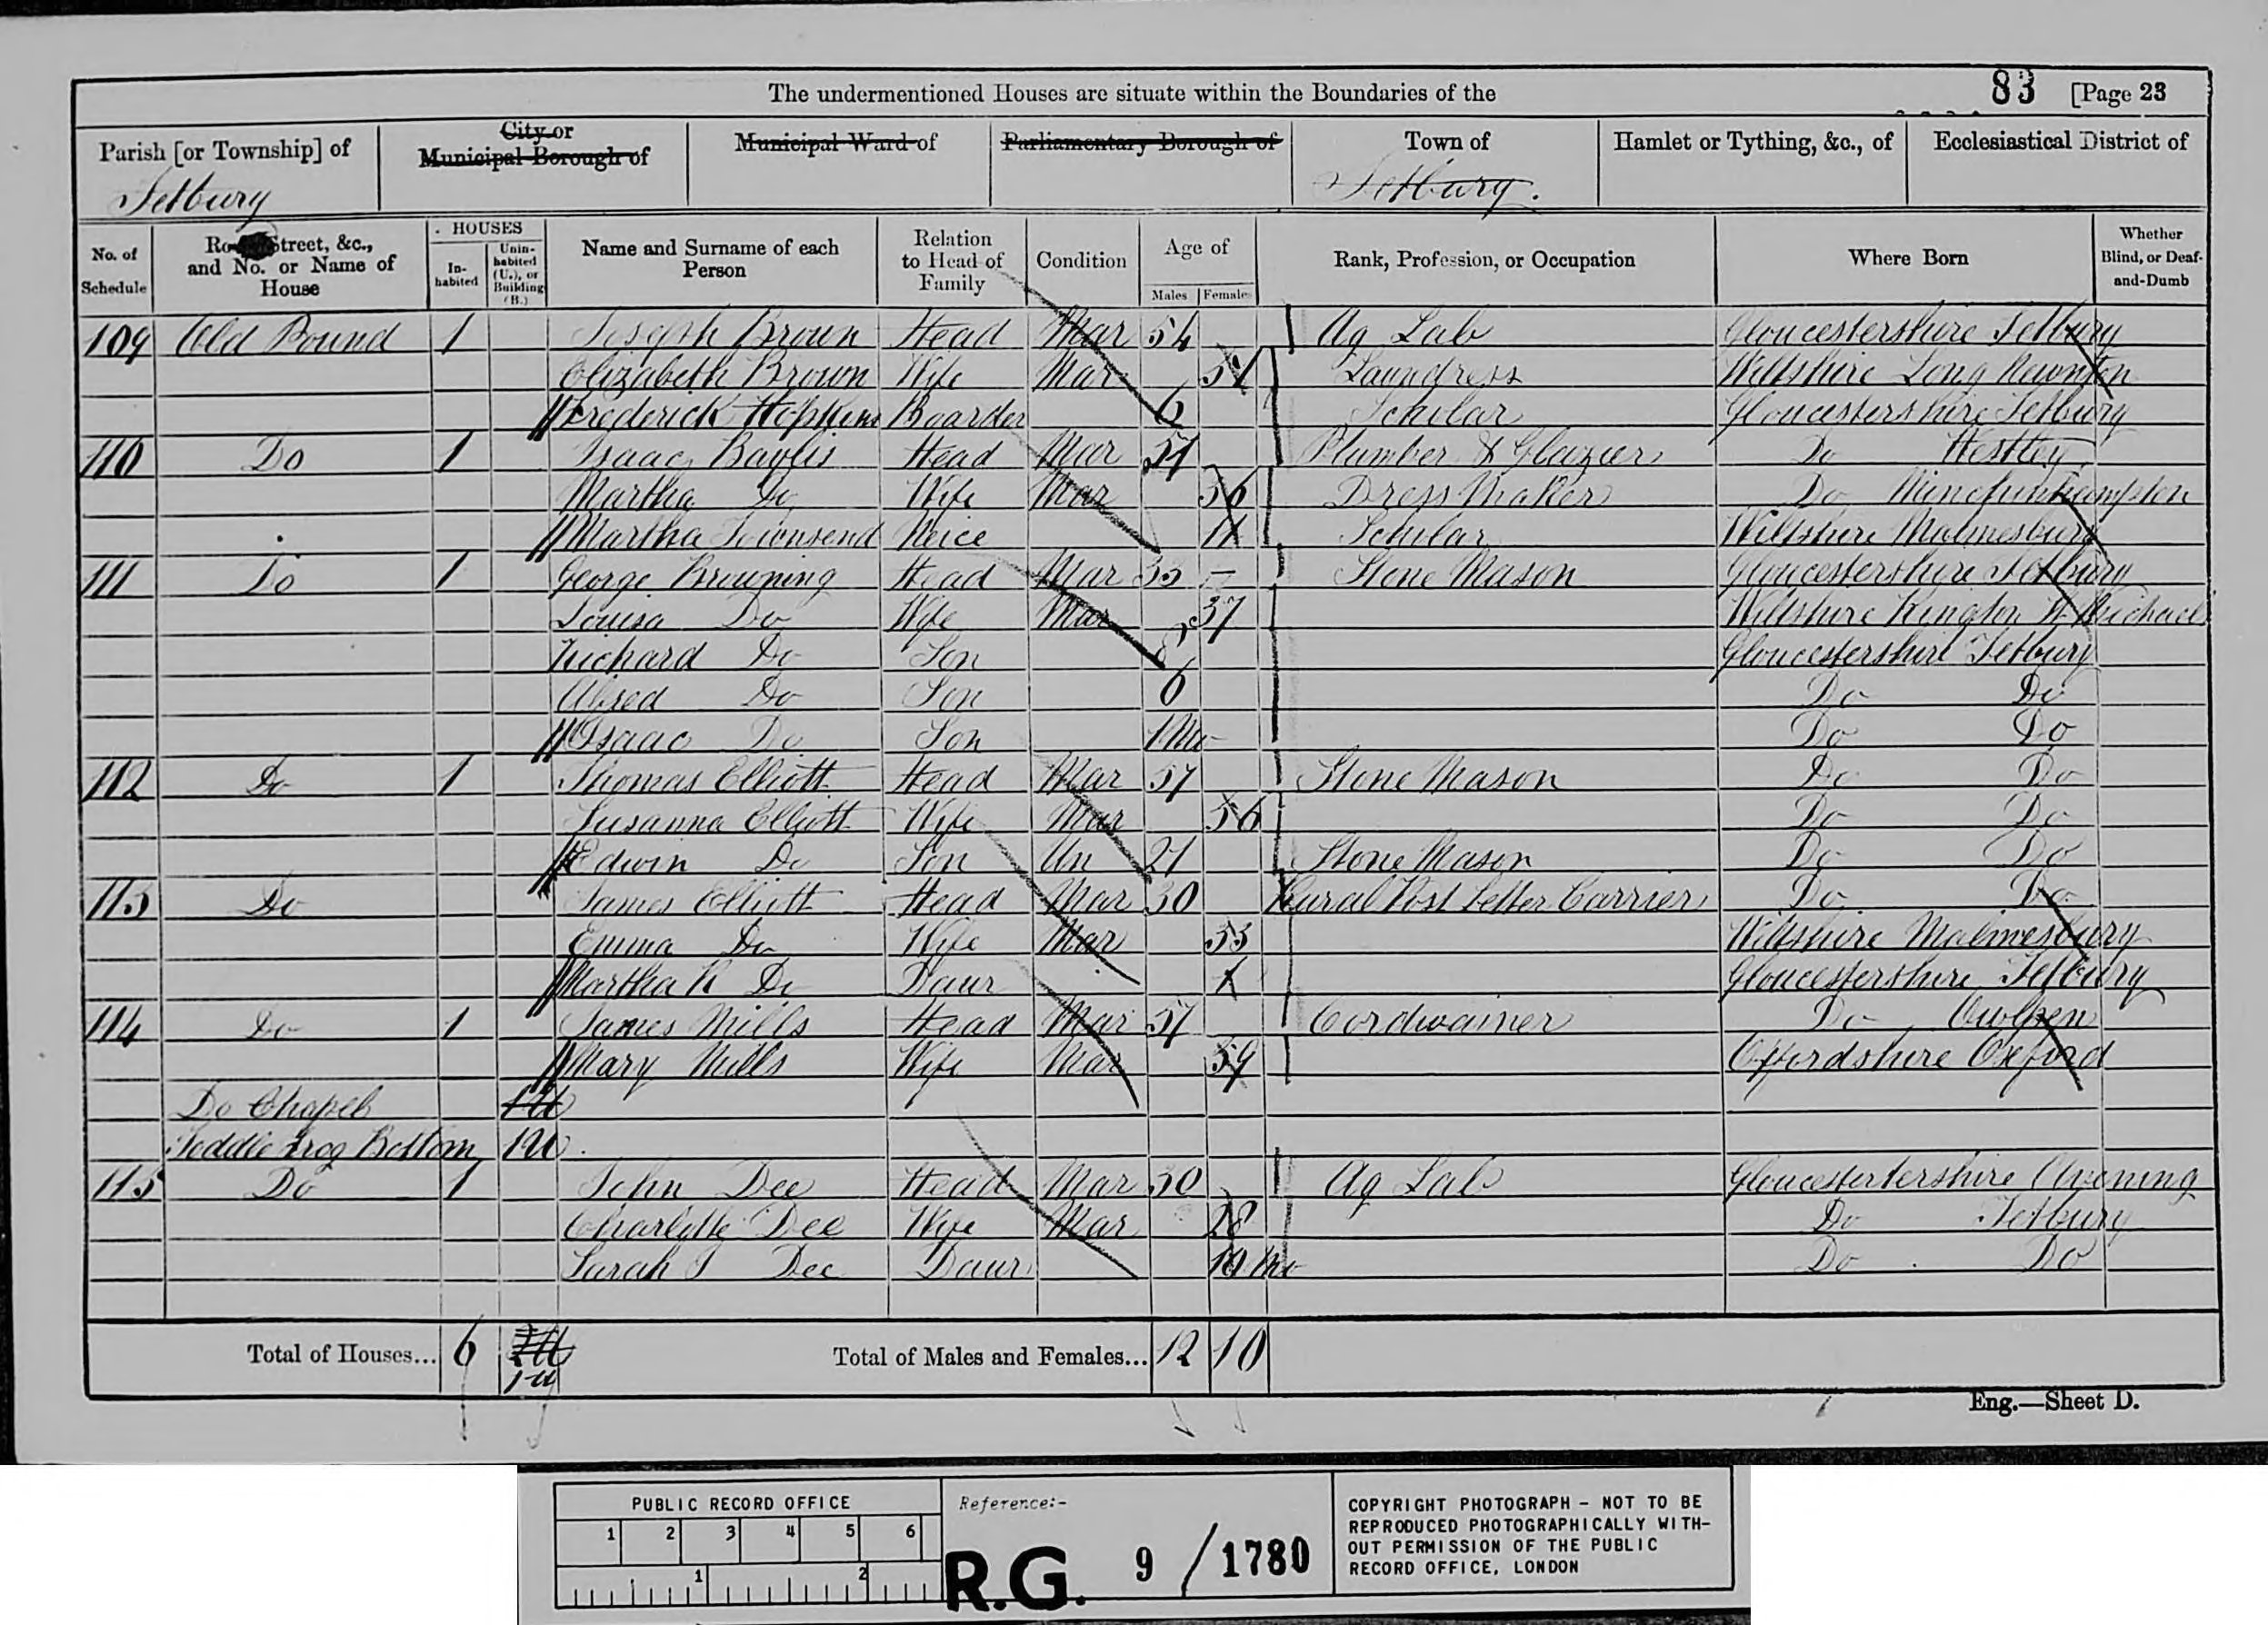 The undermentioned Houses are situate within the Boundaries of the 83 [Page 23
Parish [or Township] of City or Municipal Borough of Municipal Ward of Parliamentary Borough of Town of Hamlet or Tything, &c., of Ecclesiastical District of
Tetbury Tetbury.
No. of Schedule Road, Street, &c., and No. or Name of House HOUSES Inhabited Uninhabited (U.), or Building (B.) Name and Surname of each Person Relation to Head of Family Condition Age of Males Females Rank, Profession, or Occupation Where Born Whether Blind, or Deaf-and-Dumb
109 Old Pound 1 Joseph Brown Head Mar 54 Ag Lab Gloucestershire Tetbury
Elizabeth Brown Wife Mar 51 Laundress Wiltshire Long Newnton
Frederick Hopkins Boarder 6 Scholar Gloucestershire Tetbury
110 Do 1 Isaac Baylis Head Mar 57 Plumber & Glazier Do
Martha Do Wife Mar 56 Dress Maker Do Minchinhampton
Martha Townsend Neice 11 Scholar Wiltshire Malmesbury
111 Do 1 George Browning Head Mar 35 – Stone Mason Gloucestershire Tetbury
Louisa Do Wife Mar 37 Wiltshire Kington St Michael
Richard Do Son 8 Gloucestershire Tetbury
Alfred Do Son 6 Do Do
Isaac Do Son 1 Mo Do Do
112 Do 1 Thomas Elliott Head Mar 57 Stone Mason Do Do
Susanna Elliott Wife Mar 56 Do Do
Edwin Do Son Un 21 Stone Mason Do Do
113 Do James Elliott Head Mar 30 Rural Post Letter Carrier Do Do
Emma Do Wife Mar 33 Wiltshire Malmesbury
Martha K Do Daur 1 Gloucestershire Tetbury
114 Do 1 James Mills Head Mar 57 Cordwainer Do Owlpen
Mary Mills Wife Mar 59 Oxfordshire Oxford
Do Chapel 1U
Toddle Frog Bottom 1U.
115 Do 1 John Dee Head Mar 30 Ag Lab Gloucestertershire Avening
Charlotte Dee Wife Mar 28 Do Tetbury
Sarah J Dee Daur 10 Mo Do Do
Total of Houses... 6 2U Total of Males and Females... 12 10
1U
Eng.—Sheet D.
PUBLIC RECORD OFFICE
1 2 3 4 5 6
1 2
Reference:-
R.G. 9 / 1780
COPYRIGHT PHOTOGRAPH - NOT TO BE
REPRODUCED PHOTOGRAPHICALLY WITH-
OUT PERMISSION OF THE PUBLIC
RECORD OFFICE, LONDON